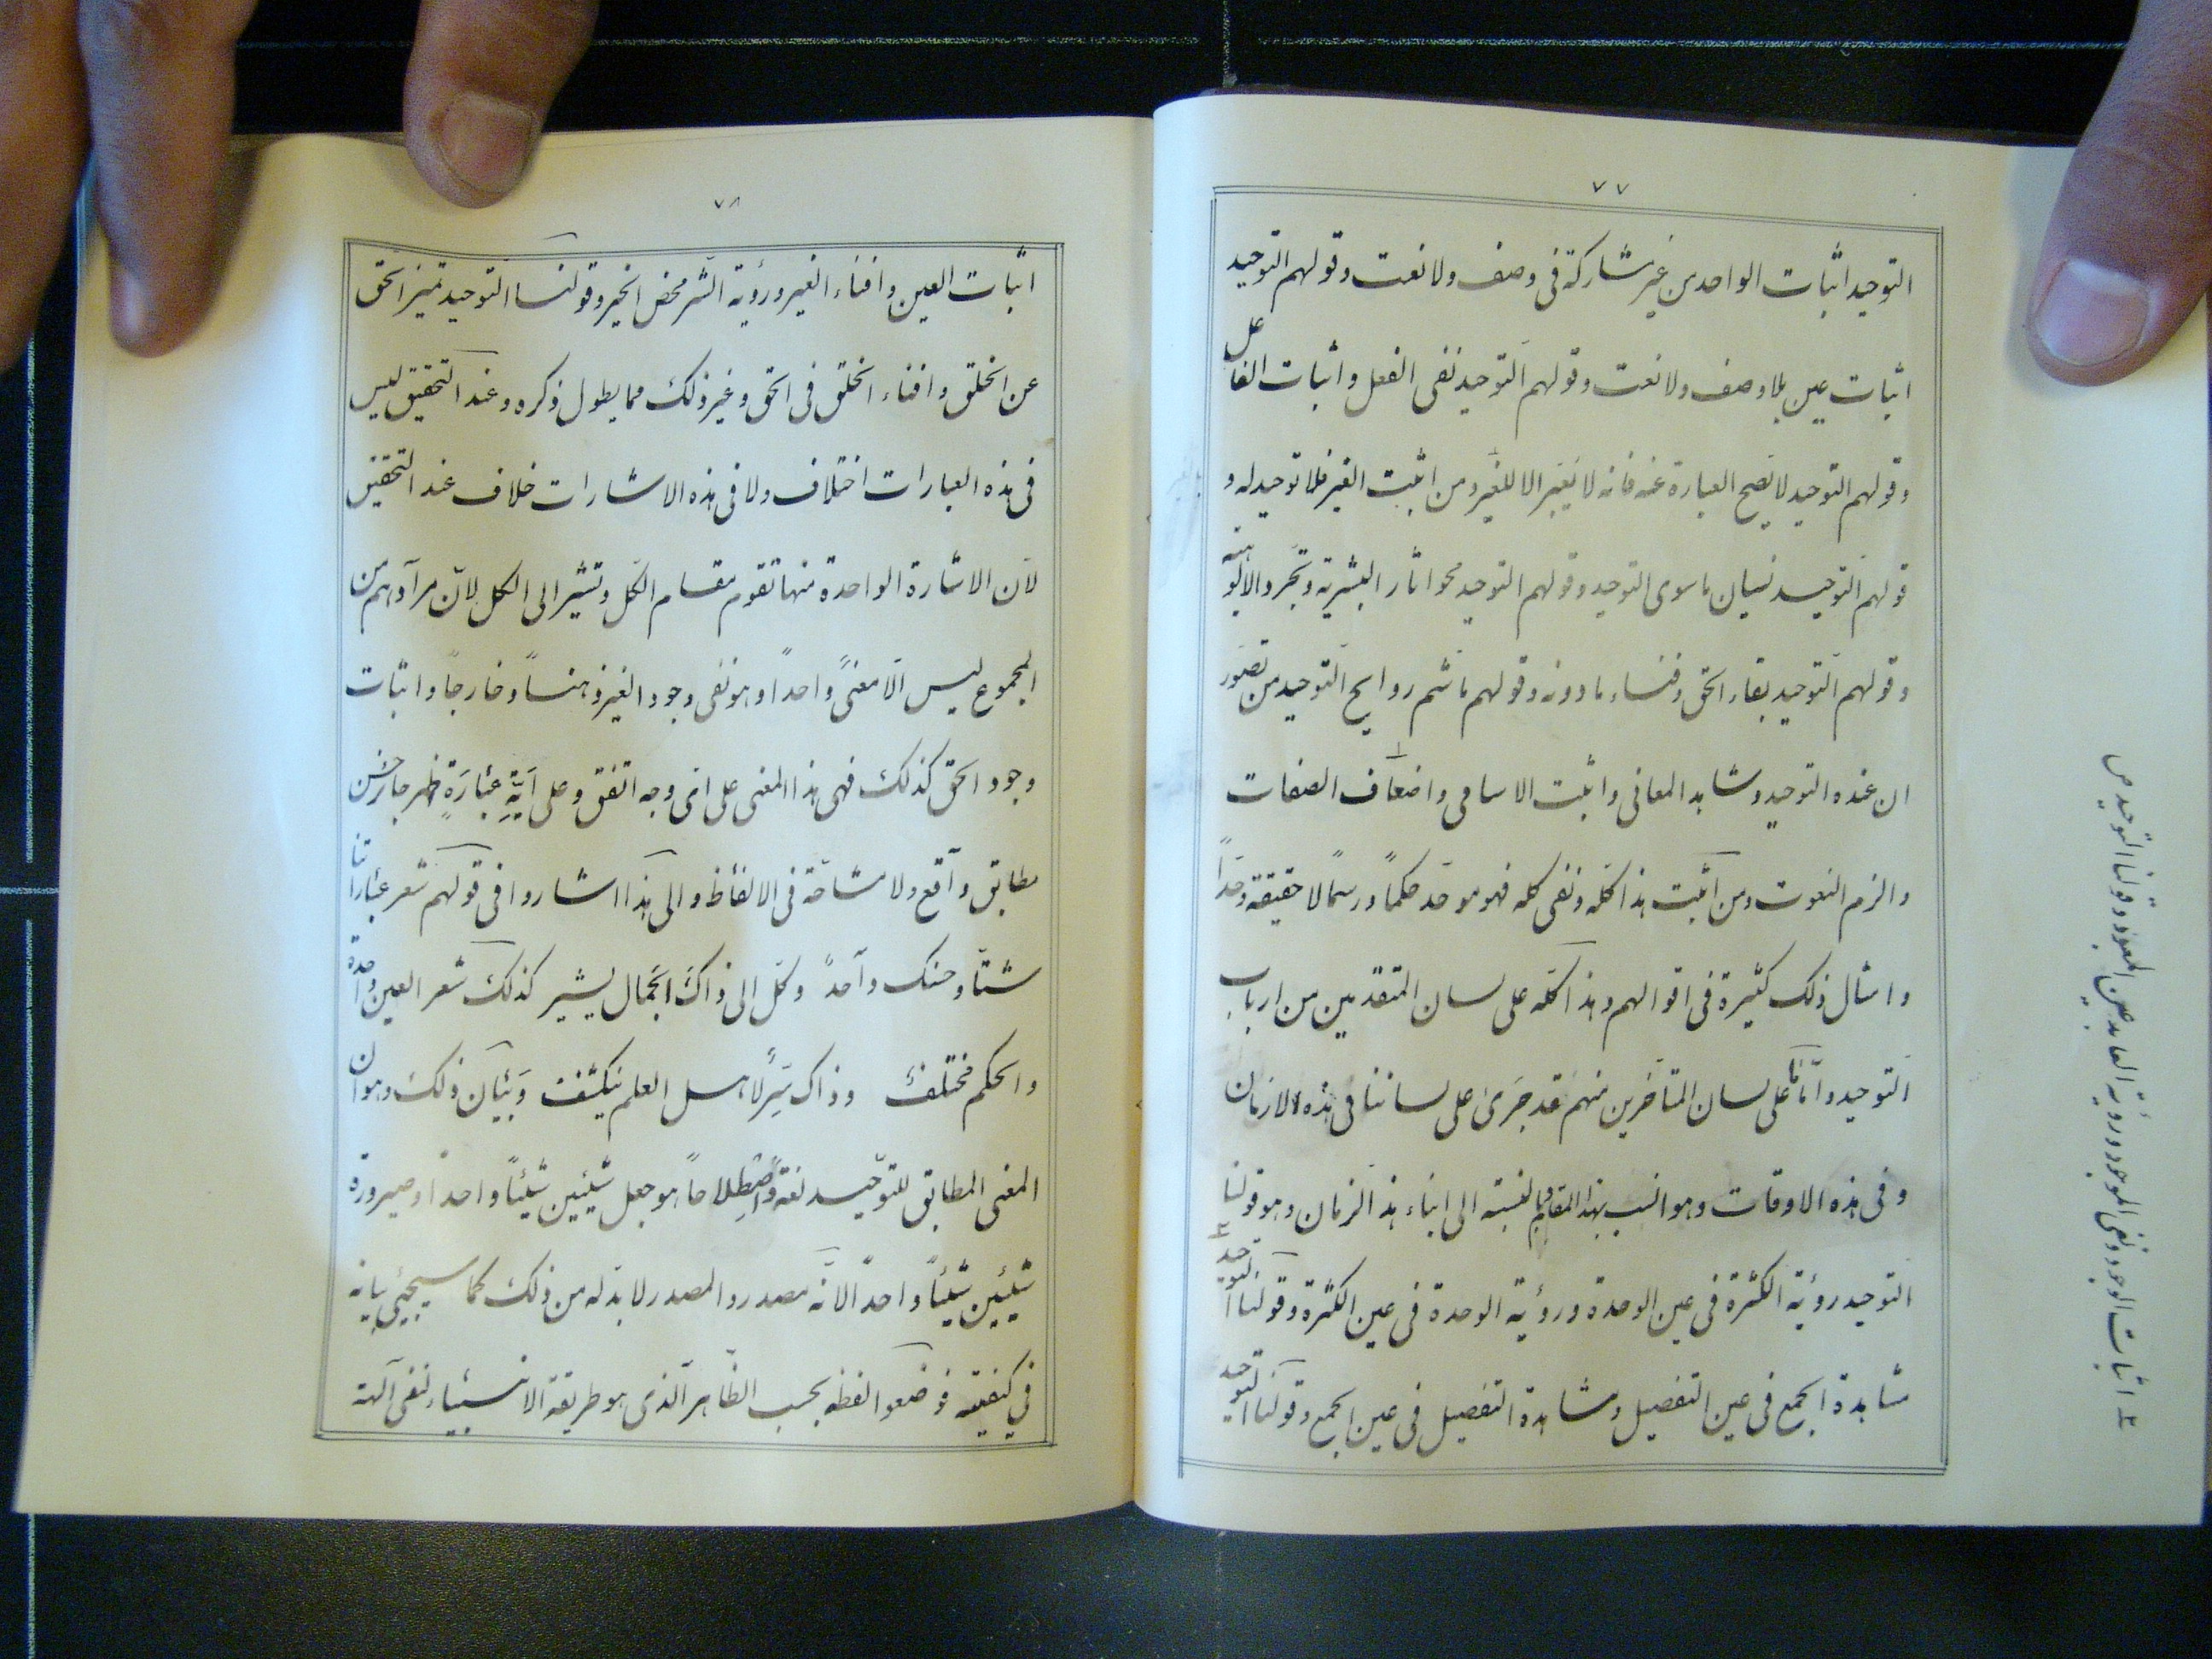 ٧٧
التوحيد اثبات الواحد من غير مشاركة فى وصف ولا نعت وقولهم التوحيد
اثبات عين بلا وصف ولا نعت وقولهم التوحيد نفى الفعل واثبات الفاعل
وقولهم التوحيد لا يصح العبارة عنه فانه لا يعبر الا للغير ومن اثبت الغير فلا توحيد له و
قولهم التوحيد نسيان ما سوى التوحيد وقولهم التوحيد محو اثار البشرية وتجرد الالوهية
وقولهم التوحيد بقاء الحق وفناء ما دونه وقولهم ما شم روايح التوحيد من تصور
ان عنده التوحيد وشاهد المعانى واثبت الاسامى واضاف الصفات
والزم النعوت ومن اثبت هذا كله ونفى كله فهو موحد حكماً ورسماً لا حقيقة وحداً
وامثال ذلك كثيرة فى اقوالهم وهذا كله على لسان المتقدمين من ارباب
التوحيد واما على لسان المتأخرين منهم قد جرى على لساننا فى هذه الازمان
وفى هذه الاوقات وهو انسب بهذا المقام بالنسبة الى ابناء هذا الزمان وهو قولنا
التوحيد رؤية الكثرة فى عين الوحدة ورؤية الوحدة فى عين الكثرة وقولنا التوحيد
مشاهدة الجمع فى عين التفصيل ومشاهدة التفصيل فى عين الجمع وقولنا التوحيد
اثبات الوجود ونفى الموجود ورؤية العابد عين المعبود وقولنا التوحيد ص
٧٨
اثبات العين وافناء الغير ورؤية الشر محض الخير وقولنا التوحيد تميز الحق
عن الخلق وافناء الخلق فى الحق وغير ذلك مما يطول ذكره وعند التحقيق ليس
فى هذه العبارات اختلاف ولا فى هذه الاشارات خلاف عند التحقيق
لان الاشارة الواحدة منها تقوم مقام الكل وتشير الى الكل لان مرادهم من
المجموع ليس الا معنىً واحداً وهو نفى وجود الغير ذهناً وخارجاً واثبات
وجود الحق كذلك فهى هذا المعنى على اى وجه اتفق وعلى اَيَّةِ عِبَارَةٍ ظهر جاز حسن
مطابق واقع ولا مشاحة فى الالفاظ والى هذا اشاروا فى قولهم شعر عباراتنا
شتّا وحسنك واحدٌ وكل الى ذاك الجمال يشير كذلك شعر العين واحدة
والحكم مختلف وذاك سرٌّ لاهل العلم ينكشف وبيان ذلك وهو ان
المعنى المطابق للتوحيد لغة واصطلاحاً هو جعل شيئين شيئاً واحداً وصيرورة
شيئين شيئاً واحداً لانه مصدر والمصدر لا بد له من ذلك كما سيجيئ بيانه
فى كيفيته فوضعوا لفظه بحسب الظاهر الذى هو طريقة الانبياء لنفى آلهة